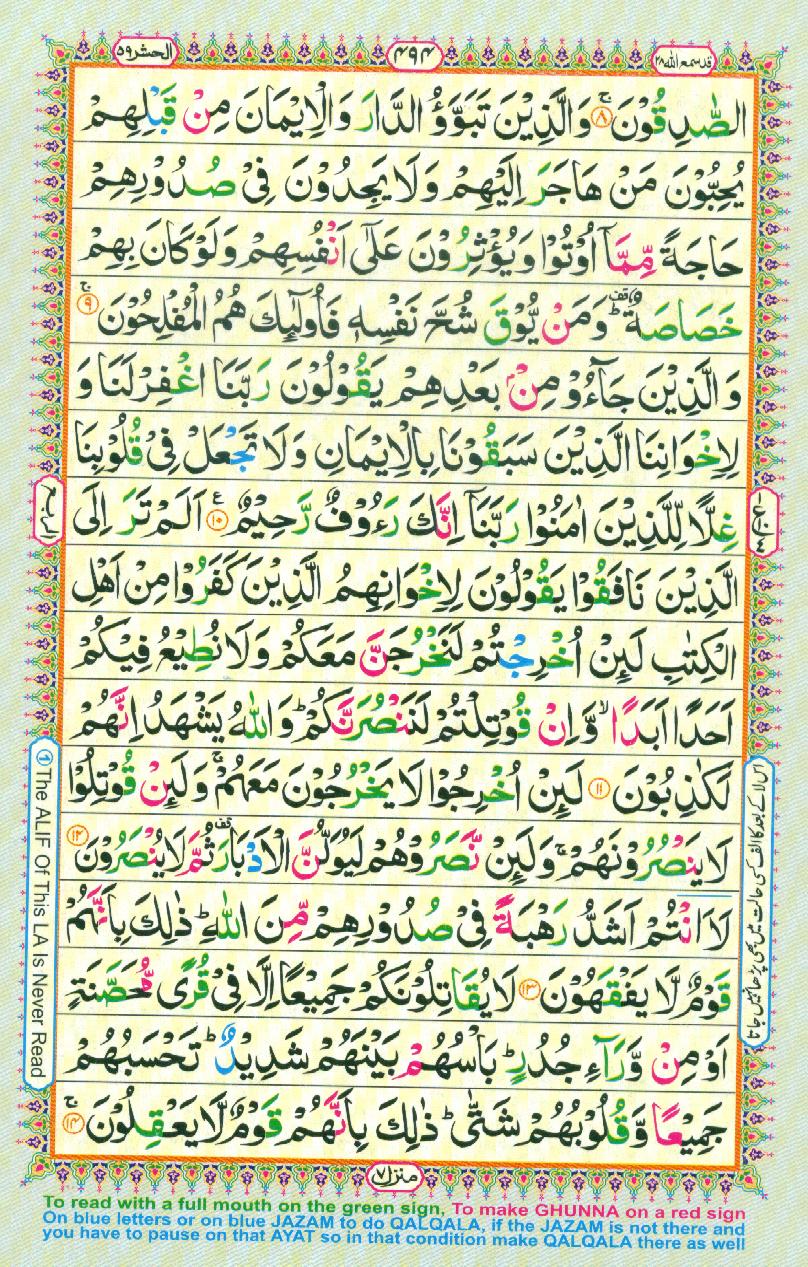 قد سمع الله ٢٨
٤٩٤
الحشر ٥٩
الصّٰدِقُوْنَ ۚ‏﴿۸﴾ وَالَّذِيْنَ تَبَوَّؤُ الدَّارَ وَالْاِيْمَانَ مِنْ قَبْلِهِمْ
يُحِبُّوْنَ مَنْ هَاجَرَ اِلَيْهِمْ وَلَا يَجِدُوْنَ فِىْ صُدُوْرِهِمْ
حَاجَةً مِّمَّاۤ اُوْتُوْا وَيُؤْثِرُوْنَ عَلٰٓى اَنْفُسِهِمْ وَلَوْ كَانَ بِهِمْ
خَصَاصَةٌ ؕقف وَمَنْ يُّوْقَ شُحَّ نَفْسِهٖ فَاُولٰٓئِكَ هُمُ الْمُفْلِحُوْنَ ۚ‏﴿۹﴾
وَالَّذِيْنَ جَآءُوْ مِنْۢ بَعْدِهِمْ يَقُوْلُوْنَ رَبَّنَا اغْفِرْ لَنَا وَ
لِاِخْوَانِنَا الَّذِيْنَ سَبَقُوْنَا بِالْاِيْمَانِ وَلَا تَجْعَلْ فِىْ قُلُوْبِنَا
غِلًّا لِّلَّذِيْنَ اٰمَنُوْا رَبَّنَاۤ اِنَّكَ رَءُوْفٌ رَّحِيْمٌ ‏﴿۱۰﴾ ع اَلَمْ تَرَ اِلَى
الَّذِيْنَ نَافَقُوْا يَقُوْلُوْنَ لِاِخْوَانِهِمُ الَّذِيْنَ كَفَرُوْا مِنْ اَهْلِ
الْكِتٰبِ لَئِنْ اُخْرِجْتُمْ لَنَخْرُجَنَّ مَعَكُمْ وَلَا نُطِيْعُ فِيْكُمْ
اَحَدًا اَبَدًا ۙ وَّاِنْ قُوْتِلْتُمْ لَنَنْصُرَنَّكُمْ ؕ وَاللّٰهُ يَشْهَدُ اِنَّهُمْ
لَكٰذِبُوْنَ ‏﴿۱۱﴾ لَئِنْ اُخْرِجُوْا لَا يَخْرُجُوْنَ مَعَهُمْ ۚ وَلَئِنْ قُوْتِلُوْا
لَا يَنْصُرُوْنَهُمْ ۚ وَلَئِنْ نَّصَرُوْهُمْ لَيُوَلُّنَّ الْاَدْبَارَ قف ثُمَّ لَا يُنْصَرُوْنَ ‏﴿۱۲﴾
لَا۟اَنْتُمْ اَشَدُّ رَهْبَةً فِىْ صُدُوْرِهِمْ مِّنَ اللّٰهِ ؕ ذٰلِكَ بِاَنَّهُمْ
قَوْمٌ لَّا يَفْقَهُوْنَ ‏﴿۱۳﴾ لَا يُقَاتِلُوْنَكُمْ جَمِيْعًا اِلَّا فِىْ قُرًى مُّحَصَّنَةٍ
اَوْ مِنْ وَّرَآءِ جُدُرٍ ؕ بَاْسُهُمْ بَيْنَهُمْ شَدِيْدٌ ؕ تَحْسَبُهُمْ
جَمِيْعًا وَّقُلُوْبُهُمْ شَتّٰى ؕ ذٰلِكَ بِاَنَّهُمْ قَوْمٌ لَّا يَعْقِلُوْنَ ۚ‏﴿۱۴﴾
الربع
① The ALIF Of This LA Is Never Read
اس لا کے بعد کا الف کسی حالت میں بھی پڑھا نہیں جاتا
منزل ٧
To read with a full mouth on the green sign, To make GHUNNA on a red sign
On blue letters or on blue JAZAM to do QALQALA, if the JAZAM is not there and
you have to pause on that AYAT so in that condition make QALQALA there as well